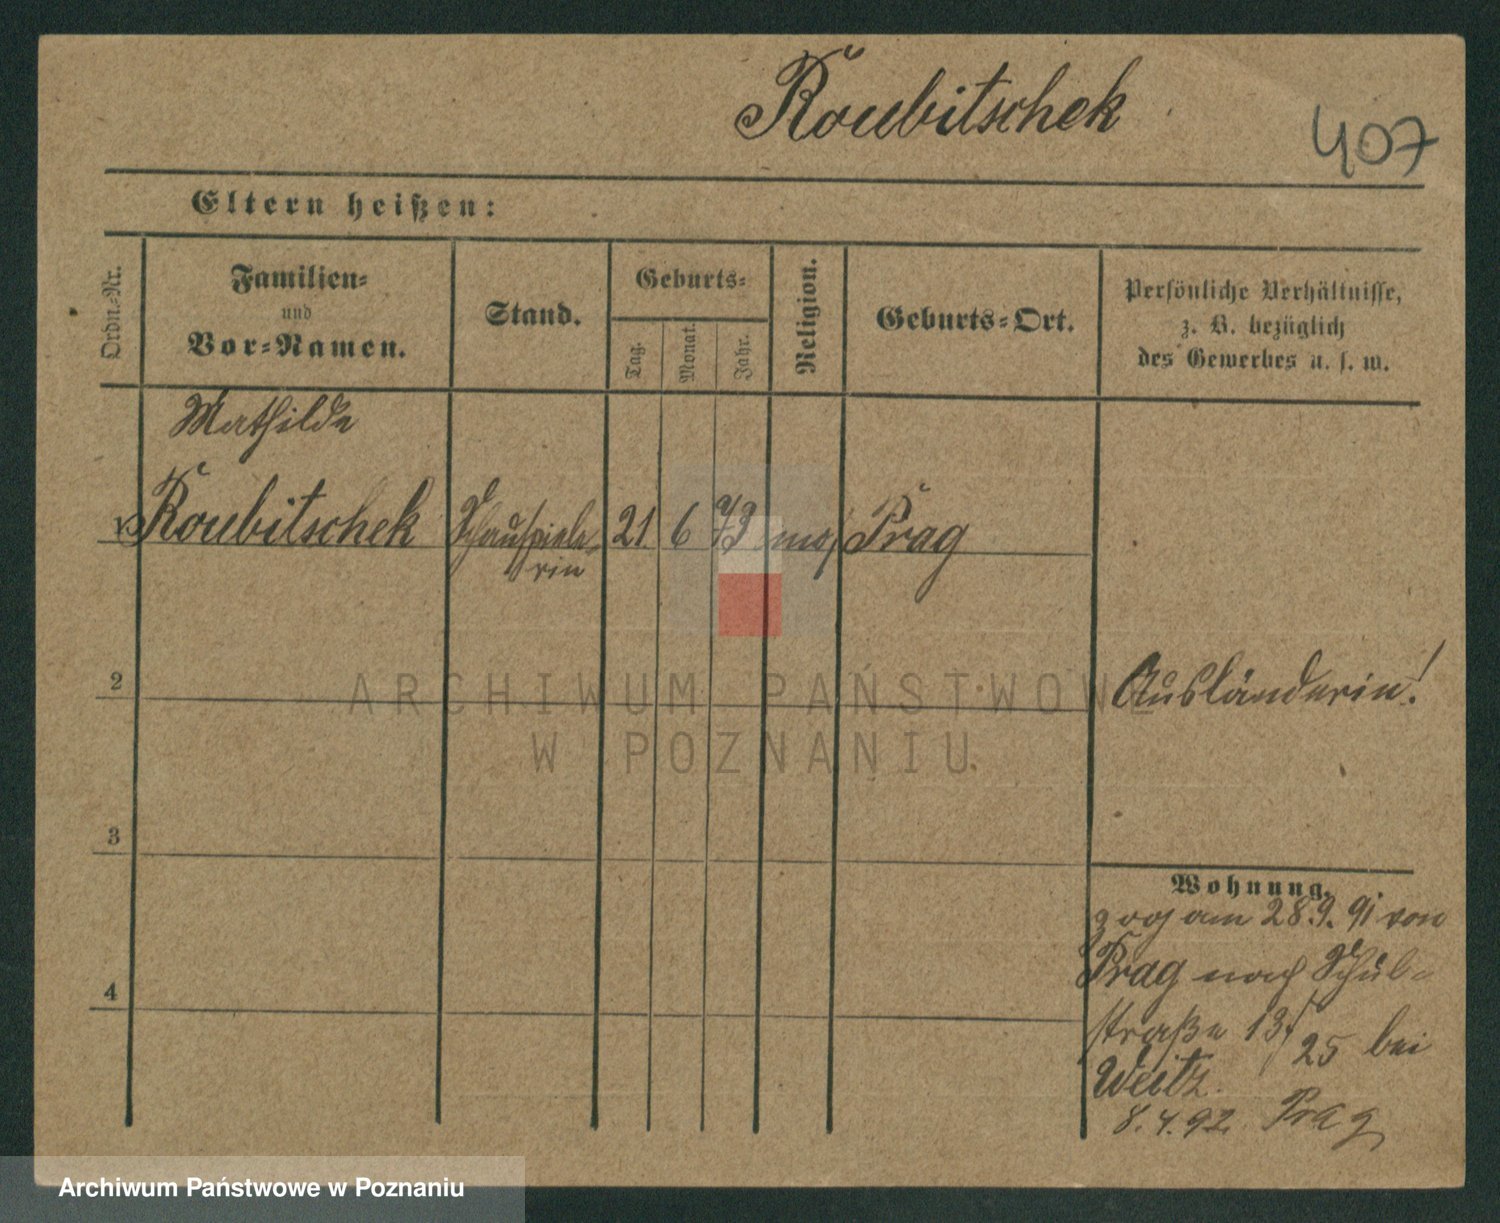 Roubitschek
407
Eltern heißen:
Ordn.-Nr.
Familien-
und
Vor-Namen.
Stand.
Geburts-
Tag.
Monat.
Jahr.
Religion.
Geburts-Ort.
Persönliche Verhältnisse,
z. B. bezüglich
des Gewerbes u. s. w.
Mathilde
1 Roubitschek Schauspiele- 21 6 73 mos Prag
rin
2
Ausländerin!
3
4
Wohnung.
zog am 28.9. 91 von
Prag nach Schul-
straße 13/
25 bei
Weitz.
8.4.92. Prag
ARCHIWUM PAŃSTWOWE
W POZNANIU
Archiwum Państwowe w Poznaniu